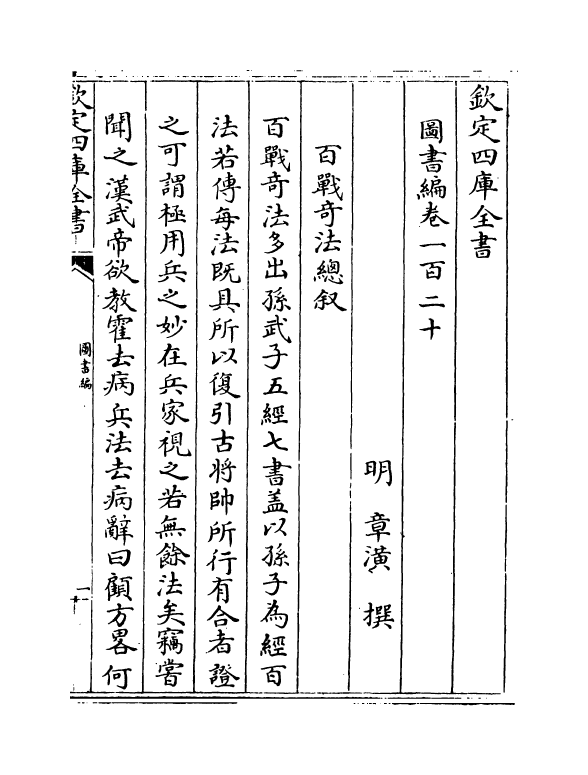 欽定四庫全書
圖書編卷一百二十
明 章潢 撰
百戰奇法總叙
百戰奇法多出孫武子五經七書盖以孫子為經百
法若傳每法既具所以復引古將帥所行有合者證
之可謂極用兵之妙在兵家視之若無餘法矣竊嘗
聞之漢武帝欲教霍去病兵法去病辭曰顧方畧何
欽定四庫全書
圖書編